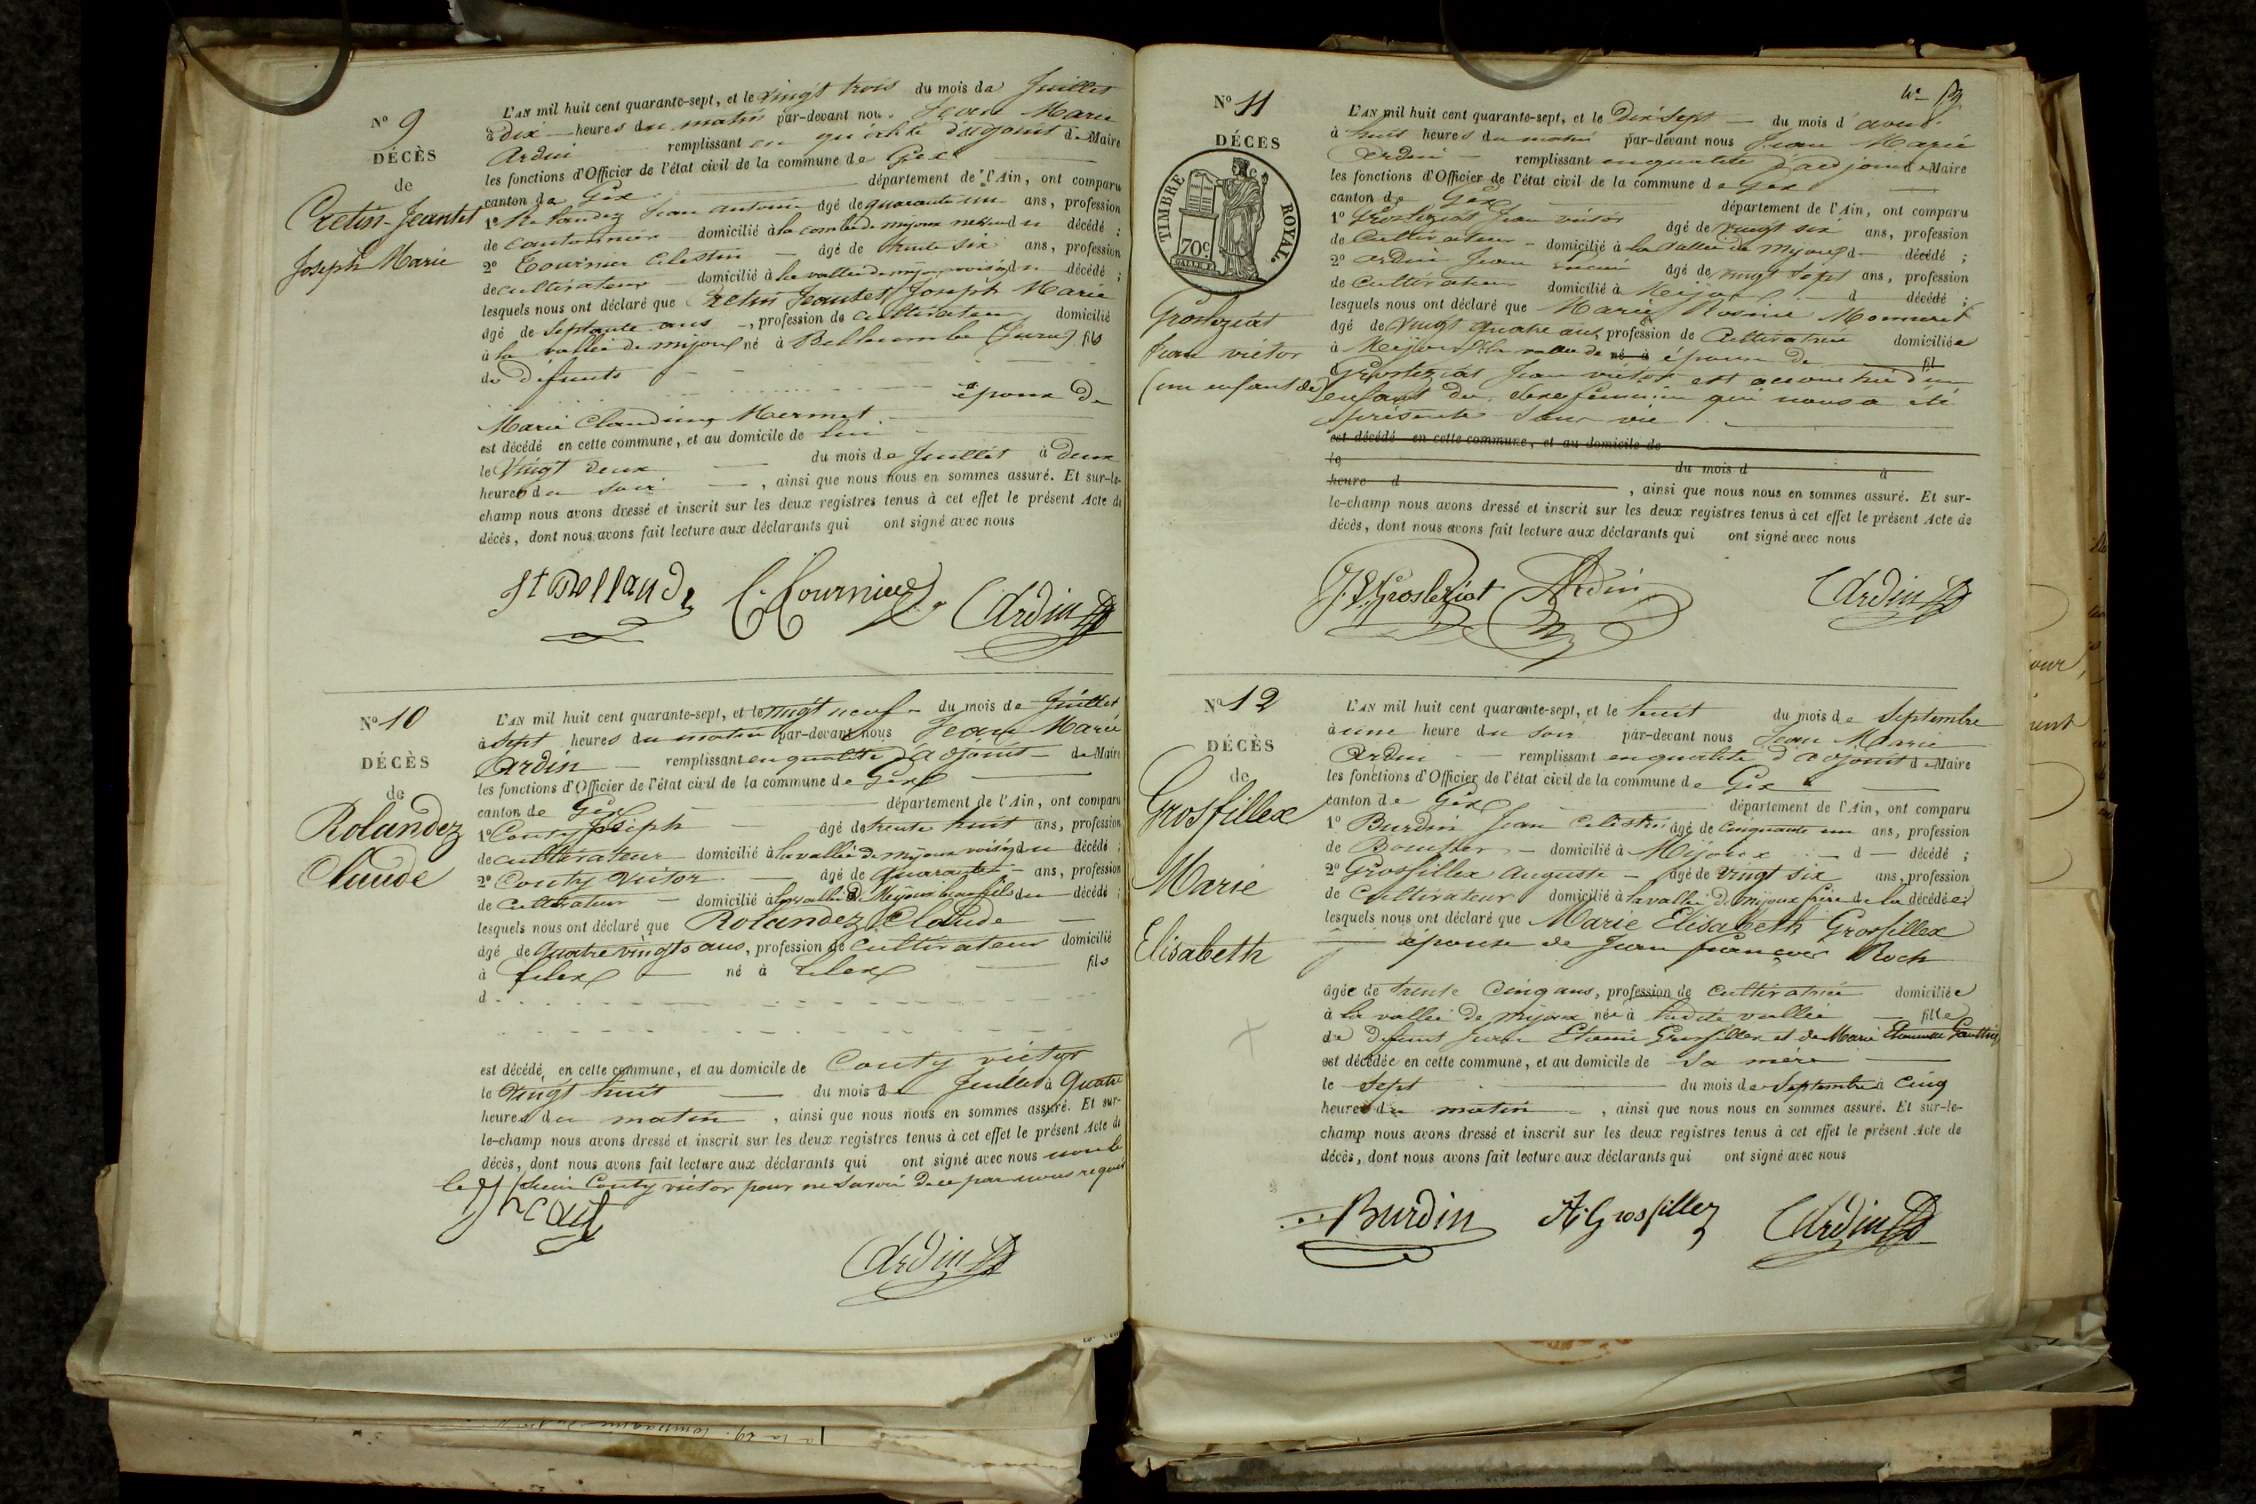 N° 9
DÉCÈS
de
Cretin-Jeantet
Joseph Marie
L'AN mil huit cent quarante-sept, et le vingt trois du mois de Juillet
à Dix heures du matin par-devant nous Jean Marie
Ardin remplissant en qualité d'adjoint de Maire
les fonctions d'Officier de l'état civil de la commune de Gex
canton de Gex département de l'Ain, ont comparu
1° Rolandez Jean Antoine âgé de quarante un ans, profession
de cantonnier domicilié à la combe de mijoux du décédé ;
2° Tournier Célestin âgé de trente six ans, profession
de cultivateur domicilié à la vallée de mijoux voisin du décédé ;
lesquels nous ont déclaré que Cretin Jeantet Joseph Marie
âgé de septante ans, profession de cultivateur domicilié
à la vallée de mijoux né à Bellecombe (Jura) fils
de défunts
époux de
Marie Claudine Mermet
est décédé en cette commune, et au domicile de lui
le vingt deux du mois de Juillet à deux
heures du soir, ainsi que nous nous en sommes assuré. Et sur-le-
champ nous avons dressé et inscrit sur les deux registres tenus à cet effet le présent Acte de
décès, dont nous avons fait lecture aux déclarants qui ont signé avec nous
C. Tournier Ardin
N° 10
DÉCÈS
de
Rolandez
Claude
L'AN mil huit cent quarante-sept, et le vingt neuf du mois de Juillet
à sept heures du matin par-devant nous Jean Marie
Ardin remplissant en qualité d'adjoint de Maire
les fonctions d'Officier de l'état civil de la commune de Gex
canton de Gex département de l'Ain, ont comparu
1° Conty Joseph âgé de trente huit ans, profession
de cultivateur domicilié à la vallée de mijoux voisin du décédé ;
2° Conty Victor âgé de quarante ans, profession
de cultivateur domicilié à la vallée de Mijoux beau fils du décédé ;
lesquels nous ont déclaré que Rolandez Claude
âgé de quatre vingts ans, profession de cultivateur domicilié
à Lelex né à Lelex fils
d
est décédé en cette commune, et au domicile de Conty victor
le vingt huit du mois de Juillet à quatre
heures du matin, ainsi que nous nous en sommes assuré. Et sur-
le-champ nous avons dressé et inscrit sur les deux registres tenus à cet effet le présent Acte de
décès, dont nous avons fait lecture aux déclarants qui ont signé avec nous non le
Conty victor pour ne savoir de ce par nous requis
Ardin
N° 11
DÉCÈS
TIMBRE ROYAL.
70c.
Grosleziat
Jean victor
(un enfant de)
L'AN mil huit cent quarante-sept, et le Dix sept du mois d'aout
à huit heures du matin par-devant nous Jean Marie
Ardin remplissant en qualité d'adjoint de Maire
les fonctions d'Officier de l'état civil de la commune de Gex
canton de Gex département de l'Ain, ont comparu
1° Grosleziat Jean victor âgé de vingt six ans, profession
de cultivateur domicilié à la vallée de mijoux d décédé ;
2° Ardin Jean âgé de vingt sept ans, profession
de cultivateur domicilié à Mijoux d décédé ;
lesquels nous ont déclaré que Marie Rosine Monneret
âgé de vingt quatre ans, profession de cultivatrice domiciliée
à Mijoux né à épouse de fil
Grosleziat Jean victor est accouchée d'un
enfant du sexe féminin qui nous a été
présenté sans vie
est décédé en cette commune, et au domicile de
le du mois d à
heure d, ainsi que nous nous en sommes assuré. Et sur-
le-champ nous avons dressé et inscrit sur les deux registres tenus à cet effet le présent Acte de
décès, dont nous avons fait lecture aux déclarants qui ont signé avec nous
J.V. Grosleziat Ardin Ardin
N° 12
DÉCÈS
de
Grosfillex
Marie
Elisabeth
L'AN mil huit cent quarante-sept, et le huit du mois de Septembre
à une heure du soir par-devant nous Jean Marie
Ardin remplissant en qualité d'adjoint de Maire
les fonctions d'Officier de l'état civil de la commune de Gex
canton de Gex département de l'Ain, ont comparu
1° Burdin Jean Célestin âgé de cinquante un ans, profession
de domicilié à Mijoux d décédé ;
2° Grosfillex Auguste âgé de vingt six ans, profession
de cultivateur domicilié à la vallée de mijoux frère de la décédée ;
lesquels nous ont déclaré que Marie Elisabeth Grosfillex
épouse de Jean françois Roch
âgée de trente cinq ans, profession de cultivatrice domiciliée
à la vallée de mijoux née à ladite vallée fille
de défunt Jean Etienne Grosfillex et de Marie
est décédée en cette commune, et au domicile de sa mère
le sept du mois de Septembre à cinq
heures du matin, ainsi que nous nous en sommes assuré. Et sur-le-
champ nous avons dressé et inscrit sur les deux registres tenus à cet effet le présent Acte de
décès, dont nous avons fait lecture aux déclarants qui ont signé avec nous
Burdin A. Grosfillex Ardin